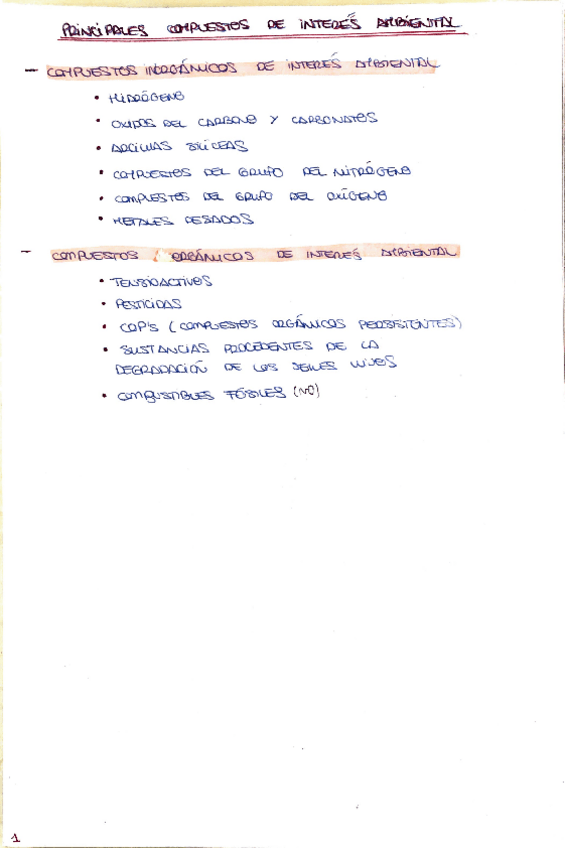 PRINCIPALES COMPUESTOS DE INTERÉS AMBIENTAL
- COMPUESTOS INORGÁNICOS DE INTERÉS AMBIENTAL
• HIDRÓGENO
• OXIDOS DEL CARBONO Y CARBONATOS
• ARCILLAS SILÍCEAS
• COMPUESTOS DEL GRUPO DEL NITRÓGENO
• COMPUESTOS DEL GRUPO DEL OXÍGENO
• METALES PESADOS
- COMPUESTOS ORGÁNICOS DE INTERÉS AMBIENTAL
• TENSIOACTIVOS
• PESTICIDAS
• COP'S (COMPUESTOS ORGÁNICOS PERSISTENTES)
• SUSTANCIAS PROCEDENTES DE LA
DEGRADACIÓN DE LOS SERES VIVOS
• COMBUSTIBLES FÓSILES (NO)
1